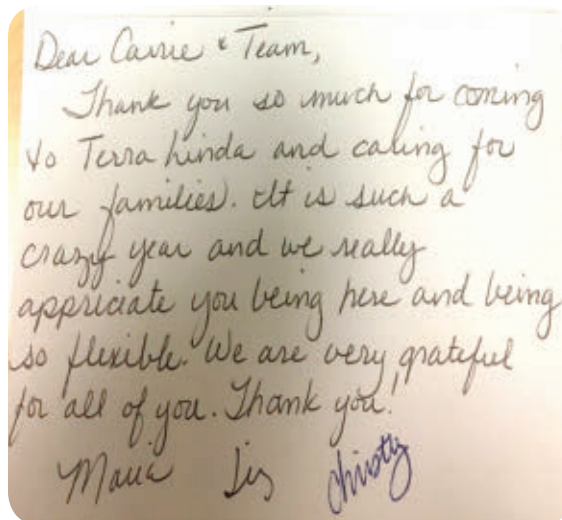 Dear Carrie & Team,
Thank you so much for coming
to Terra Linda and caring for
our families. It is such a
crazy year and we really
appriciate you being here and being
so flexible. We are very grateful
for all of you. Thank you!
Maria Liz Christy